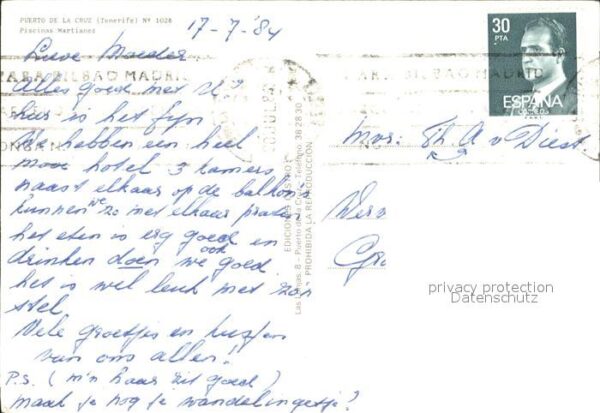 PUERTO DE LA CRUZ (Tenerife) Nº 1028
Piscinas Martianez
17-7-'84
Lieve Moeder
Alles goed met U?
hier is het fijn
We hebben een heel
mooi hotel 3 kamers
naast elkaar op de balkons
kunnen we zo met elkaar praten
het eten is erg goed en
drinken doen we ook goed
het is wel leuk met zon
stel
Vele groetjes en kusjes
van ons allen!
P.S. (m'n haar zit goed)
maak je nog je wandelingetje?
EDICIONES GASTEROT
Puerto de la Cruz Teléfono: 38 28 30
PROHIBIDA LA REPRODUCCION
PARA BILBAO MADRID
PARA BILBAO MADRID
30
PTA
ESPAÑA
CORREOS
Mvr: Th A v Diest
Wern
Gro
privacy protection
Datenschutz